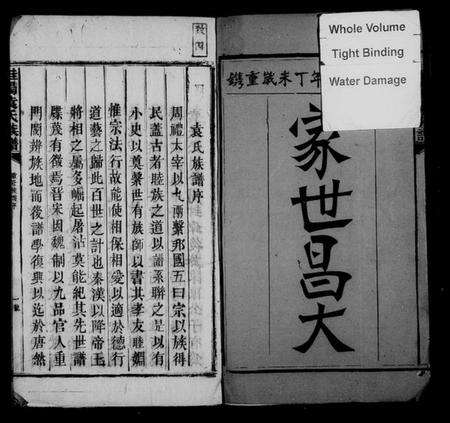 Whole Volume
Tight Binding
Water Damage
年丁未歲重鐫
家世昌大
袁氏族譜序
周禮太宰以九兩繫邦國五曰宗以族得
民蓋古者睦族之道以譜系聯之是以有
小史以奠繫世有族師以書其孝友睦婣
惟宗法行故能使相保相愛以適於德行
道藝之歸此百世之計也秦漢以降帝王
將相之屬多崛起屠沽莫能紀其先世譜
牒蔑有徵焉晉宋因魏制以九品官人重
門閥辨族地而後譜學復興以迄於唐然
袁氏族譜